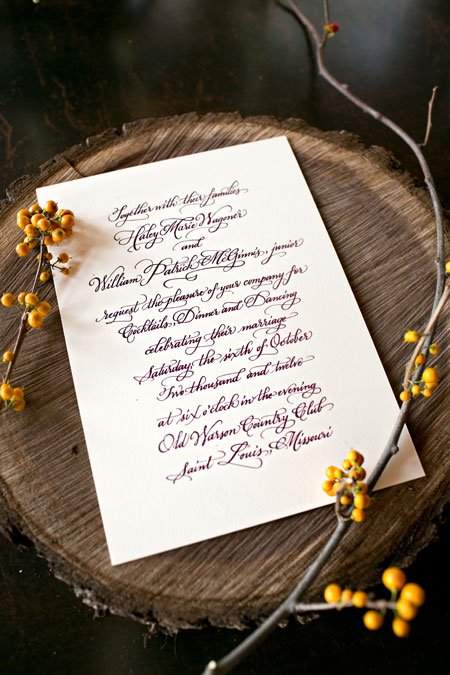 Together with their families
Haley Marie Wagoner
and
William Patrick McGinnis, junior
request the pleasure of your company for
Cocktails, Dinner and Dancing
celebrating their marriage
Saturday, the sixth of October
Two thousand and twelve
at six o'clock in the evening
Old Warson Country Club
Saint Louis, Missouri